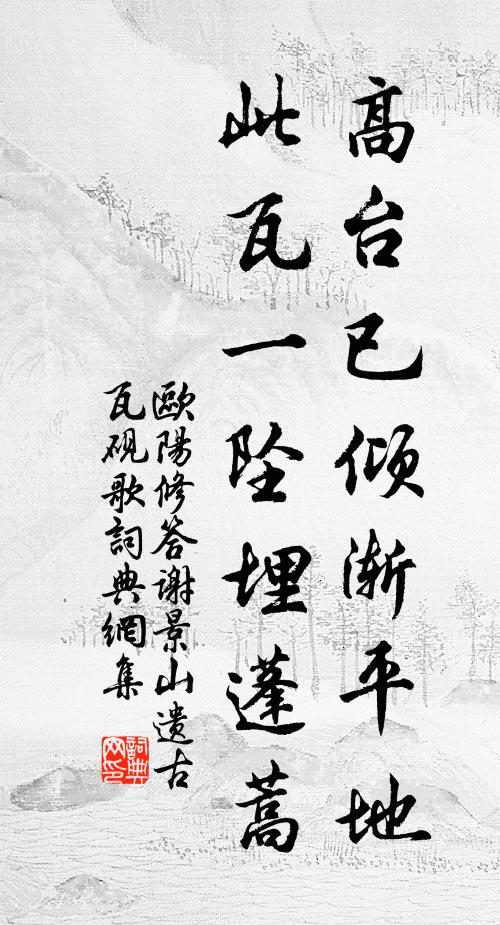 高台已倾渐平地
此瓦一坠埋蓬蒿
歐陽修答谢景山遗古
瓦砚歌詞典網集
詞典
网印